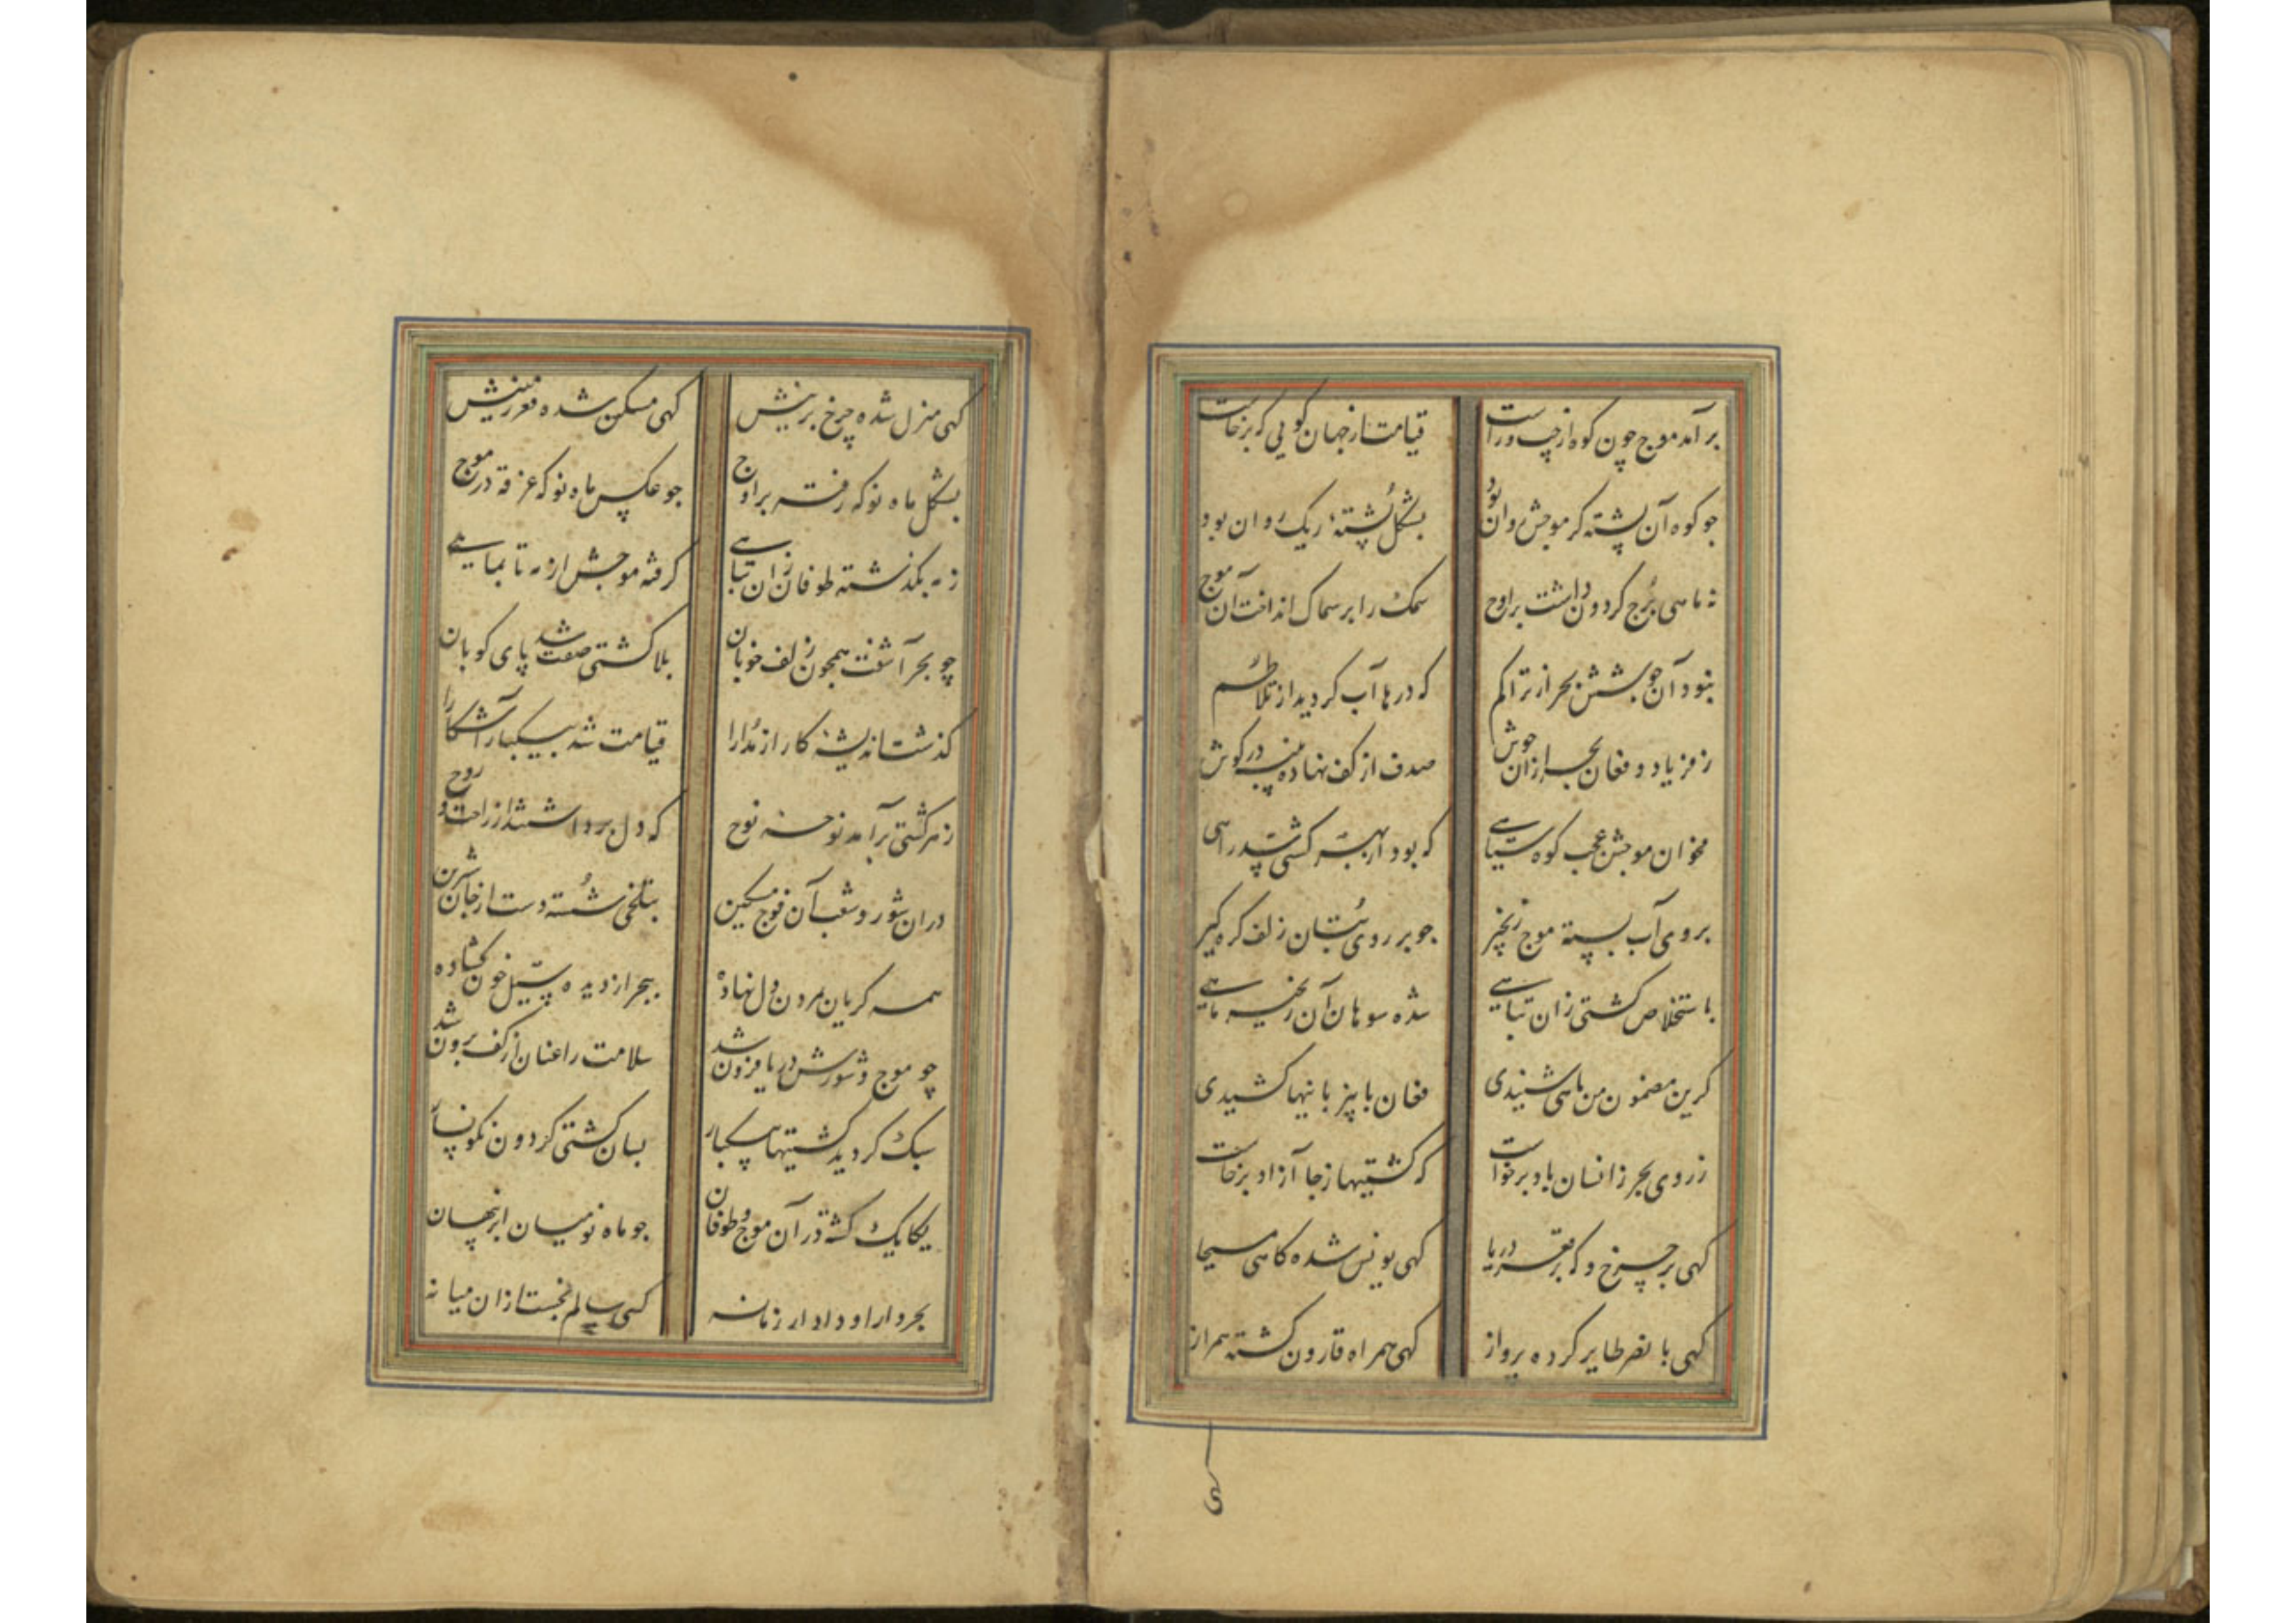 برآمد موج چون کوه از چپ و راست
قیامت از جهان کویی که برخاست
جو کوه آن پشته کر موجش روان بود
بشکل پُشتهٔ ریک روان بود
نه ماهی بُرج کردون داشت بر اوج
سمک را بر سماک انداخت آن موج
نبود آن جوشش بحر از تراکم
که درها آب کردید از تلاطُم
ز فریاد و فغان بحر از آن جوش
صدف از کف نهاده پنبه در کوش
مخوان موجش عجب کوه سیاهی
که بود از بهر کشتی سد راهی
بروی آب بسته موج زنجیر
جو بر روی بُتان زلف کره کیر
باستخلاص کشتی زان تباهی
شده سوهان آن زنجیر ماهی
کرین مضمون من ماهی شنیدی
فغان با بیزبانیها کشیدی
ز روی بحر زانسان باد برخواست
که کشتیها ز جا آزاد برخاست
کهی بر چرخ و که بر قعر دریا
کهی یونس شده کاهی مسیحا
کهی با نصر طایر کرده پرواز
کهی همراه قارون کشته همراز
کهی
کهی منزل شده چرخ برینش
کهی مسکن شده قعر زمینش
بشکل ماه نو که رفته بر اوج
جو عکس ماه نو که غرقه در موج
ز مه بکذشته طوفان زان تباهی
کرفته موجش از مه تا بماهی
چو بحر آشفت همچون زلف خوبان
بلا کشتی صفت شد پای کوبان
کذشت اندیشهٔ کار از مُدارا
قیامت شد بیکبار آشکارا
ز هر کشتی برآمد نوحهٔ نوح
که دل برداشتند از راحت و روح
در ان شور و شغب آن فوج مسکین
بتلخی شُسته دست از جان شیرین
همه کریان بمردن دل نهاده
ببحر از دیده سیل خون کشاده
چو موج و شورش دریا فزون شد
سلامت را عنان از کف برون شد
سبک کردید کشتیها بیکبار
بسان کشتی کردون نکونسار
یکایک کشته در آن موج و طوفان
جو ماه نو میان ابر پنهان
بجز دارا و داراب زمانه
کسی سالم نجست از ان میانه